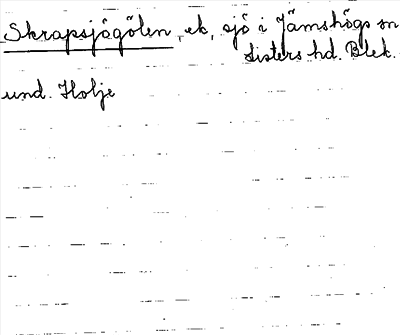 Skrapsjögölen, ek, sjö i Jämshögs sn
Listers hd. Blek.
und. Holje